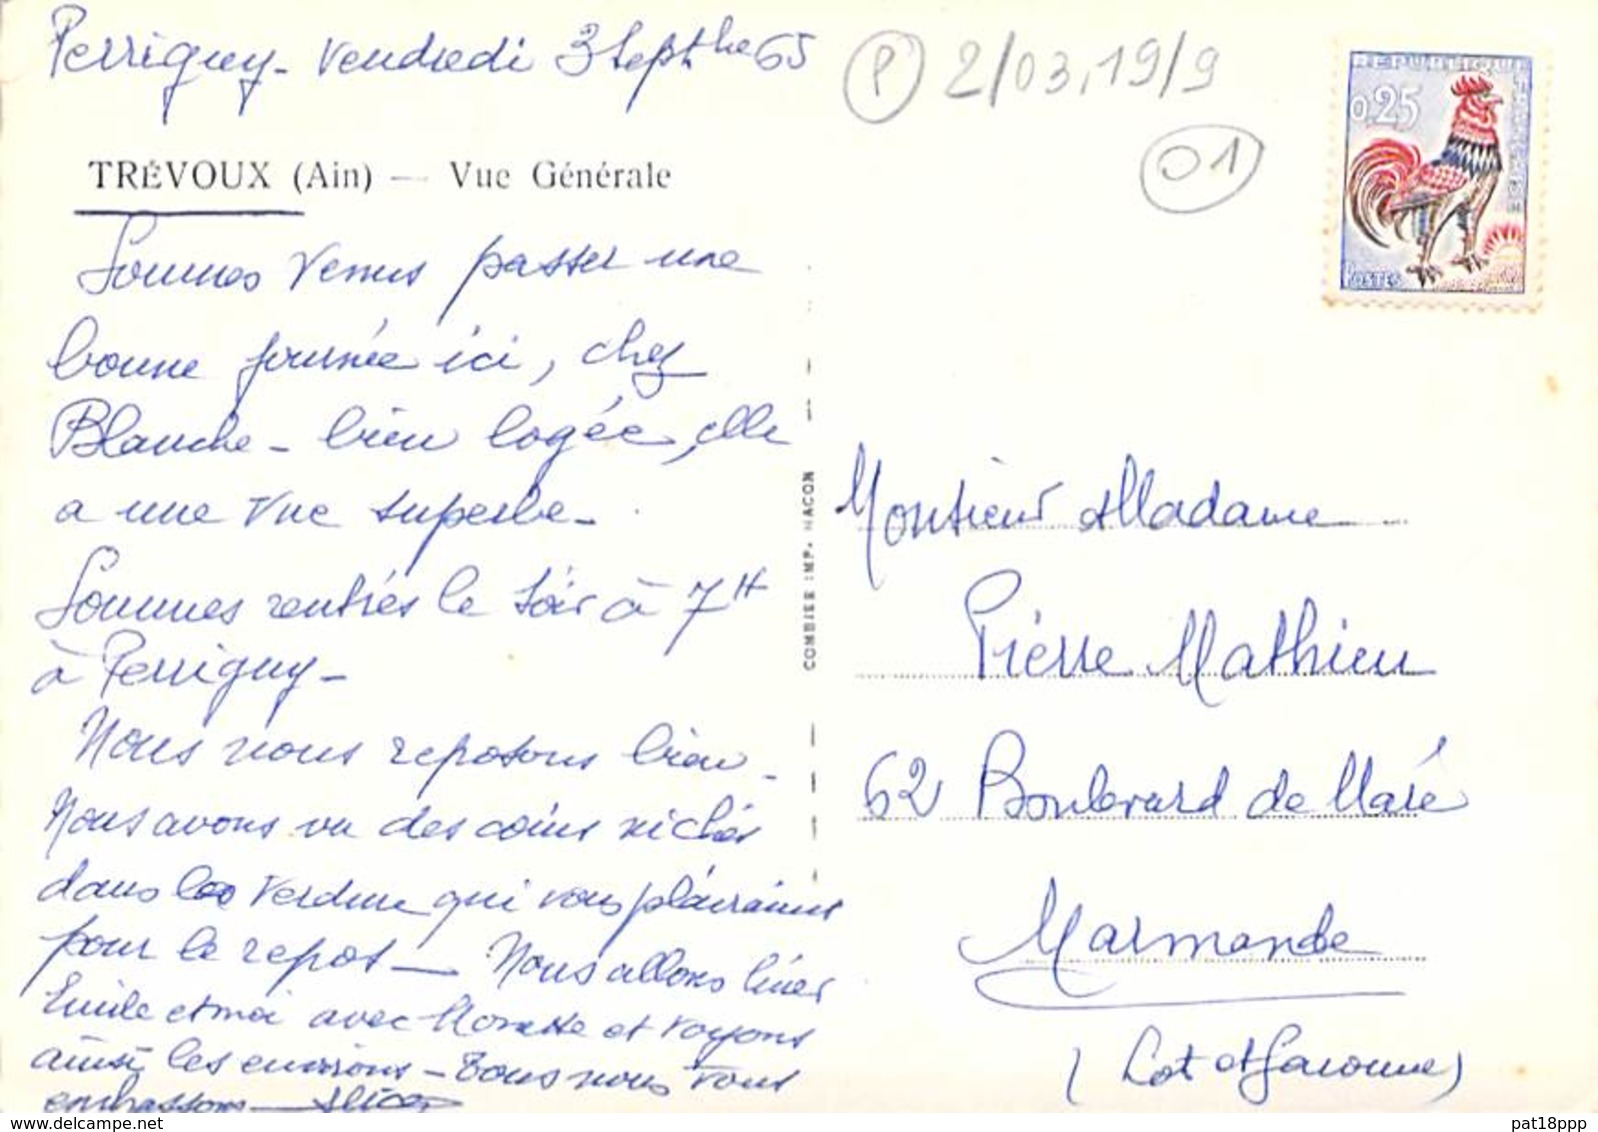 Perriguey - Vendredi 3 Septbre 65
P 2/03,19/9
01
REPUBLIQUE FRANCAISE
0,25
POSTES
TRÉVOUX (Ain) — Vue Générale
Sommes venus passer une
bonne journée ici, chez
Blanche - bien logée, elle
a une vue superbe -
Sommes rentrés le soir à 7H
à Perriguy -
Nous nous reposons bien -
Nous avons vu des coins nichés
dans la verdure qui vous plairaient
pour le repos — Nous allons
Emile et moi avec et voyons
ainsi les environs - Tous nous vous
embrassons - Alice
COMBIER IMP. MACON
Monsieur et Madame
Pierre Mathieu
62 Boulevard de Maré
Marmande
(Lot et Garonne)
pat18ppp